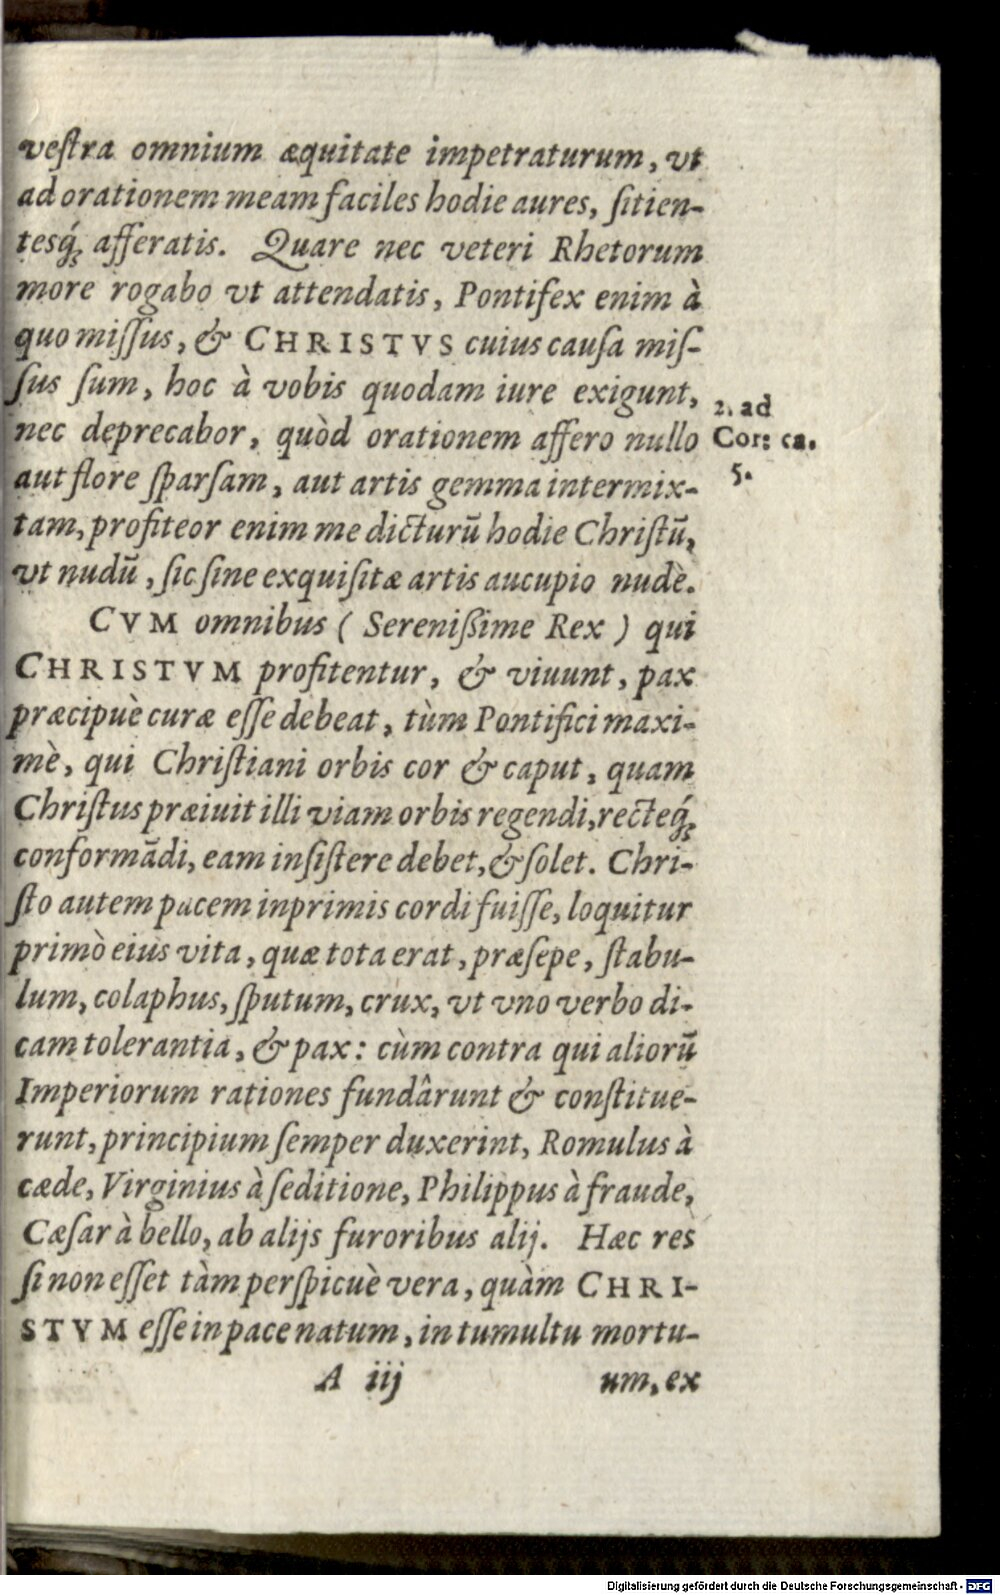 veſtra omnium æquitate impetraturum, vt
ad orationem meam faciles hodie aures, ſitien-
tesq́; afferatis. Quare nec veteri Rhetorum
more rogabo vt attendatis, Pontifex enim à
quo miſſus, & CHRISTVS cuius cauſa miſ-
ſus ſum, hoc à vobis quodam iure exigunt,
nec deprecabor, quòd orationem affero nullo
aut flore ſparſam, aut artis gemma intermix-
tam, profiteor enim me dicturū hodie Chriſtū,
vt nudū, ſic ſine exquiſitæ artis aucupio nudè.
2. ad
Cor: ca.
5.
CVM omnibus ( Sereniſſime Rex ) qui
CHRISTVM profitentur, & viuunt, pax
præcipuè curæ eſſe debeat, tùm Pontifici maxi-
mè, qui Chriſtiani orbis cor & caput, quam
Chriſtus præiuit illi viam orbis regendi, recteq́;
conformādi, eam inſiſtere debet, & ſolet. Chri-
ſto autem pacem inprimis cordi fuiſſe, loquitur
primò eius vita, quæ tota erat, præſepe, ſtabu-
lum, colaphus, ſputum, crux, vt vno verbo di-
cam tolerantia, & pax: cùm contra qui aliorū
Imperiorum rationes fundârunt & conſtitue-
runt, principium ſemper duxerint, Romulus à
cæde, Virginius à ſeditione, Philippus à fraude,
Cæſar à bello, ab alijs furoribus alij. Hæc res
ſi non eſſet tàm perſpicuè vera, quàm CHRI-
STVM eſſe in pace natum, in tumultu mortu-
A iij um, ex
Digitalisierung gefördert durch die Deutsche Forschungsgemeinschaft - DFG